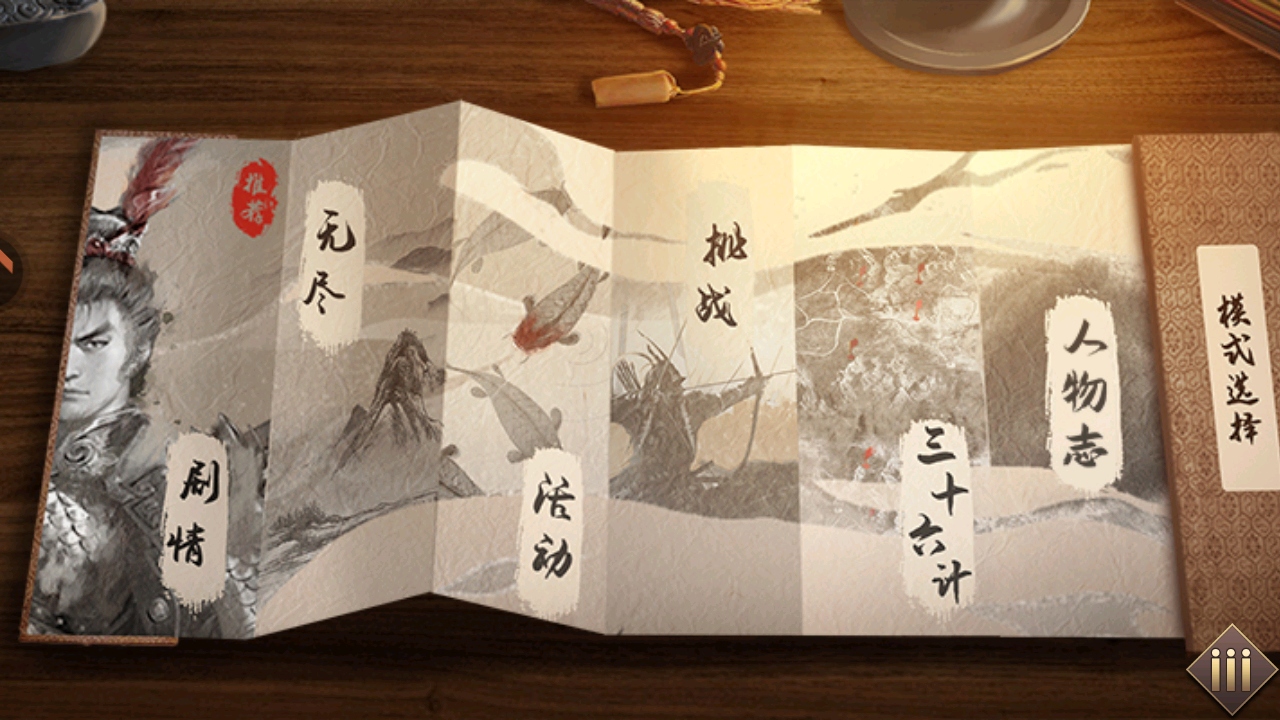 推荐
剧情
无尽
活动
挑战
三十六计
人物志
模式选择